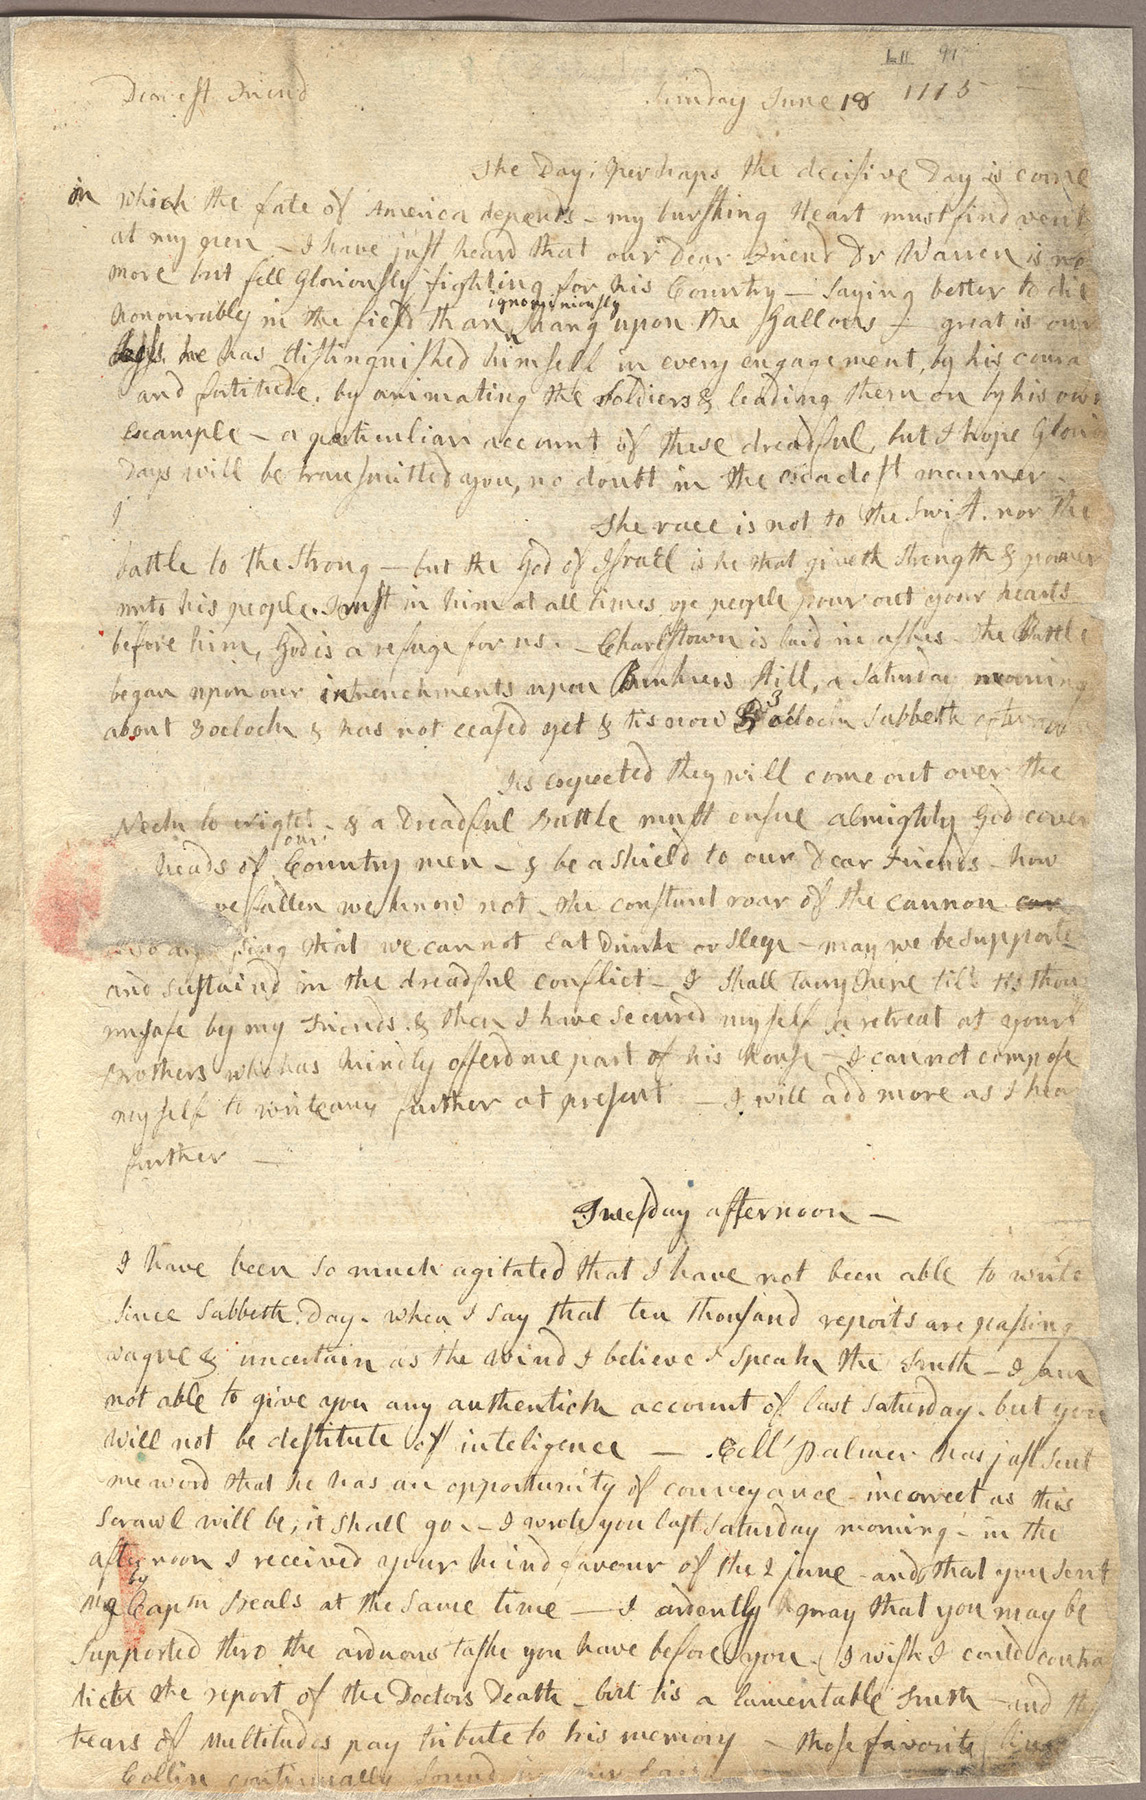 LII 91
Dearest Friend Sunday June 18 1775
The Day; perhaps the decisive Day is come
in which the fate of America depends - my bursting Heart must find vent
at my pen - I have just heard that our dear Friend Dr Warren is no
more but fell gloriously fighting for his Country - saying better to die
honourably in the field than ignominiously hang upon the Gallows - great is our
Loss. he has distinguished himself in every engagement, by his coura
and fortitude, by animating the soldiers & leading them on by his own
example - a particuliar account of these dreadful, but I hope Glorio
Days will be transmitted you, no doubt in the exactest manner -
I
The race is not to the swift, nor the
battle to the strong - but the God of Israel is he that giveth strength & power
unto his people. Trust in him at all times ye people pour out your hearts
before him, God is a refuge for us. - Charlstown is laid in ashes - the Battle
began upon our intrenchments upon Bunkers Hill, a Saturday morning
about 3 oclock & has not ceased yet & tis now 3 oclock Sabbeth afternoon
Tis expected they will come out over the
Neck to night - & a dreadful Battle must ensue almighty God cover
heads of our Country men - & be a shield to our Dear Friends - how
ve fallen we know not - the constant roar of the cannon
sing that we can not Eat Drink or Sleep - may we be supporte
and sustaind in the dreadful conflict - I shall tarry here till tis thou
unsafe by my Friends. & then I have secured myself a retreat at your
Brothers who has kindly offerd me part of his house - I cannot compose
myself to write any further at present - I will add more as I hear
further -
Tuesday afternoon -
I have been so much agitated that I have not been able to write
since Sabbeth Day - when I say that ten thousand reports are passing
vague & uncertain as the wind I believe I speak the Truth - I am
not able to give you any authentick account of last Saturday - but you
will not be destitute of inteligence - Coll Palmer has just sent
me word that he has an opportunity of conveyance - incorrect as this
scrawl will be, it shall go - I wrote you last Saturday morning - in the
afternoon I received your kind favour of the 2 june - and that you sent
me by Capn Beals at the same time - I ardently pray that you may be
supported thro the arduous taske you have before you - I wish I could contra
dict the report of the Doctors Death - but tis a lamentable Truth - and the
tears of Multitudes pay tribute to his memory - those favorite lines
Collin continually sound in my Ears